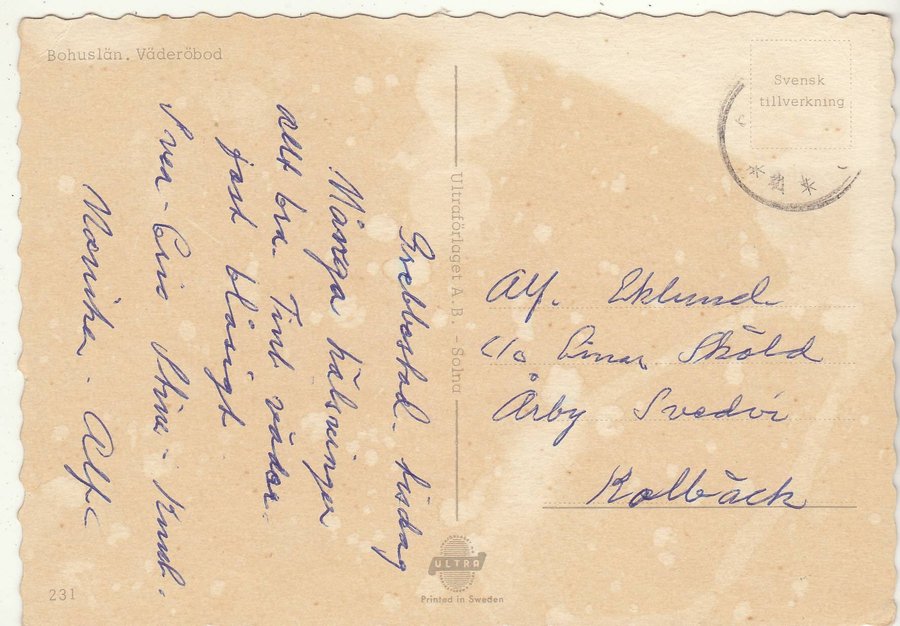 Bohuslän. Väderöbod
Grebbestad. tisdag
Många hälsningar
allt bra. Fint väder
jast blåsigt
Svea - Eric Stina - Knut.
Monika - Alf.
231
Ultraförlaget A.B. - Solna
ULTRA
Printed in Sweden
Svensk
tillverkning
Alf. Eklund.
c/o Einar Sköld
Årby Svedvi
Kolbäck